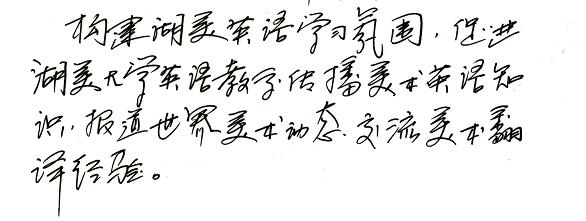 构建湖美英语学习氛围，促进
湖美大学英语教学，传播美术英语知
识，报道世界美术动态，交流美术翻
译经验。